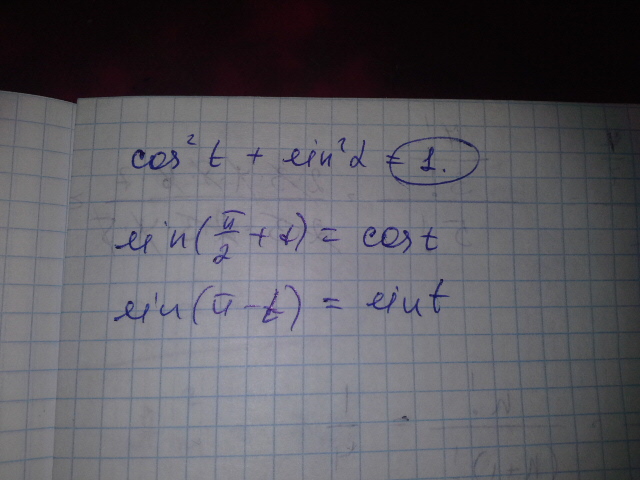 cos² t + sin² t = 1.
sin(π/2 + t) = cos t
sin(π - t) = sin t